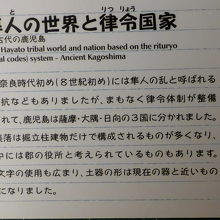 と りつ りょう
人の世界と律令国家
古代の鹿児島
Hayato tribal world and nation based on the rituryo
al codes) system - Ancient Kagoshima
奈良時代初め(8世紀初め)には隼人の乱と呼ばれる
抗などもありましたが、まもなく律令体制が整備
れて、鹿児島は薩摩・大隅・日向の3国に分かれました。
集落は掘立柱建物だけで構成されるものが多くなり、
中には郡の役所と考えられているものもあります。
文字の使用も広まり、土器の形は現在の器と近いもの
になりました。